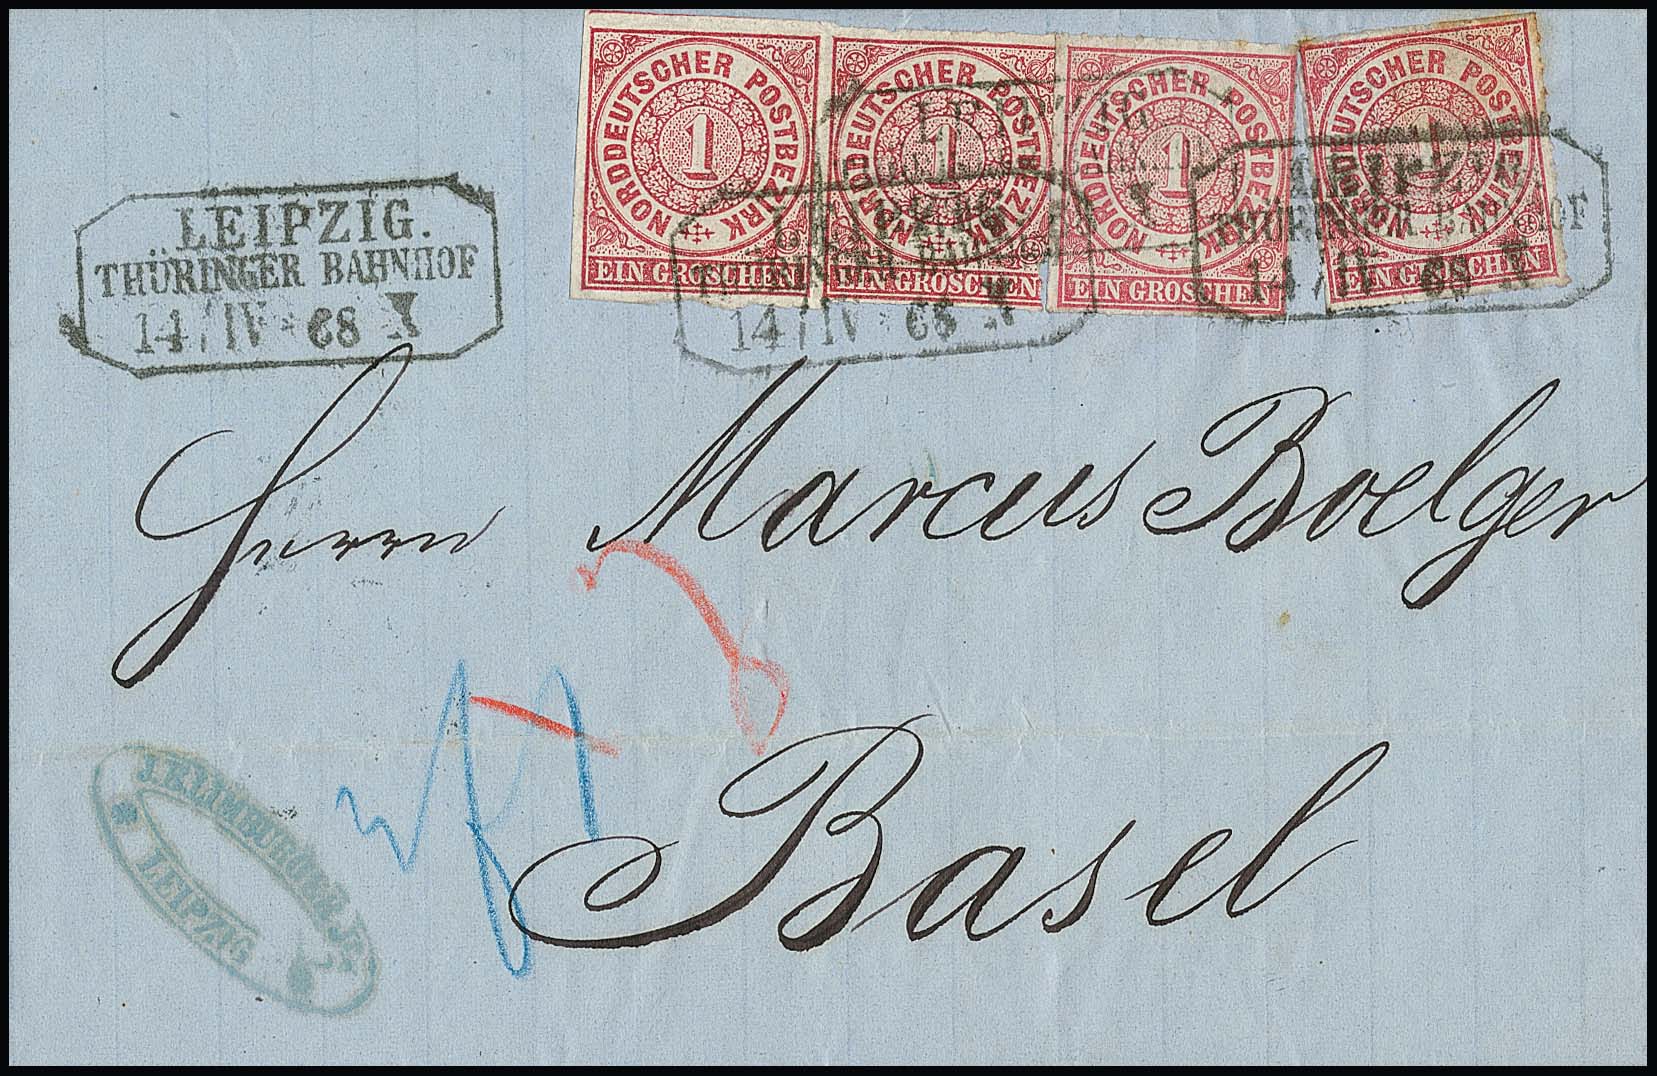 NORDDEUTSCHER POSTBEZIRK
1
EIN GROSCHEN
NORDDEUTSCHER POSTBEZIRK
1
EIN GROSCHEN
NORDDEUTSCHER POSTBEZIRK
1
EIN GROSCHEN
NORDDEUTSCHER POSTBEZIRK
1
EIN GROSCHEN
LEIPZIG.
THÜRINGER BAHNHOF
14 / IV * 68 * I
LEIPZIG
THÜRINGER BAHNHOF
14 / IV * 68
LEIPZIG
THÜRINGER BAHNHOF
14 / IV 68
Herrn Marcus Boelger
Basel
LEIPZIG